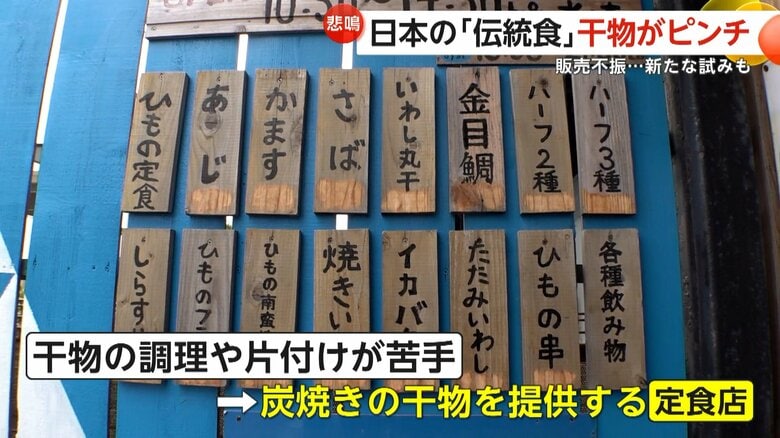 悲鳴
日本の「伝統食」干物がピンチ
販売不振…新たな試みも
ひもの定食
あじ
かます
さば
いわし丸干
金目鯛
ハーフ2種
ハーフ3種
しらす
ひもの
ひもの南蛮
焼き
イカ
たたみいわし
ひもの串
各種飲み物
干物の調理や片付けが苦手
→炭焼きの干物を提供する定食店